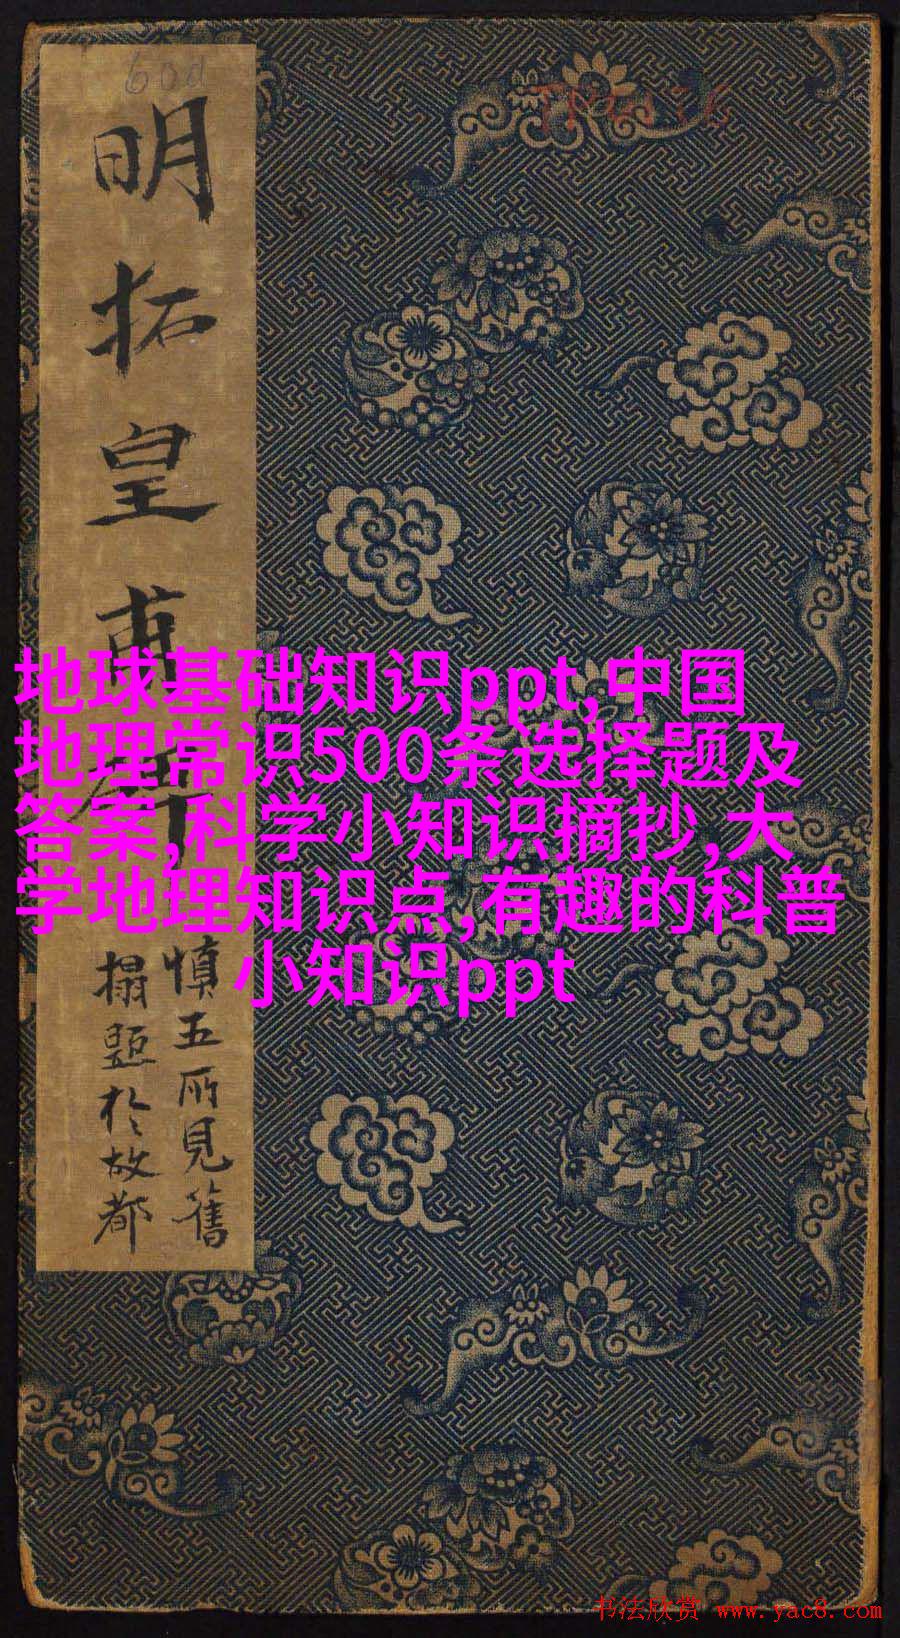 60d
明拓皇甫碑
慎五所見舊
搨題於故都
地球基础知识ppt,中国
地理常识500条选择题及
答案,科学小知识摘抄,大
学地理知识点,有趣的科普
小知识ppt
书法欣赏 www.yac8.com